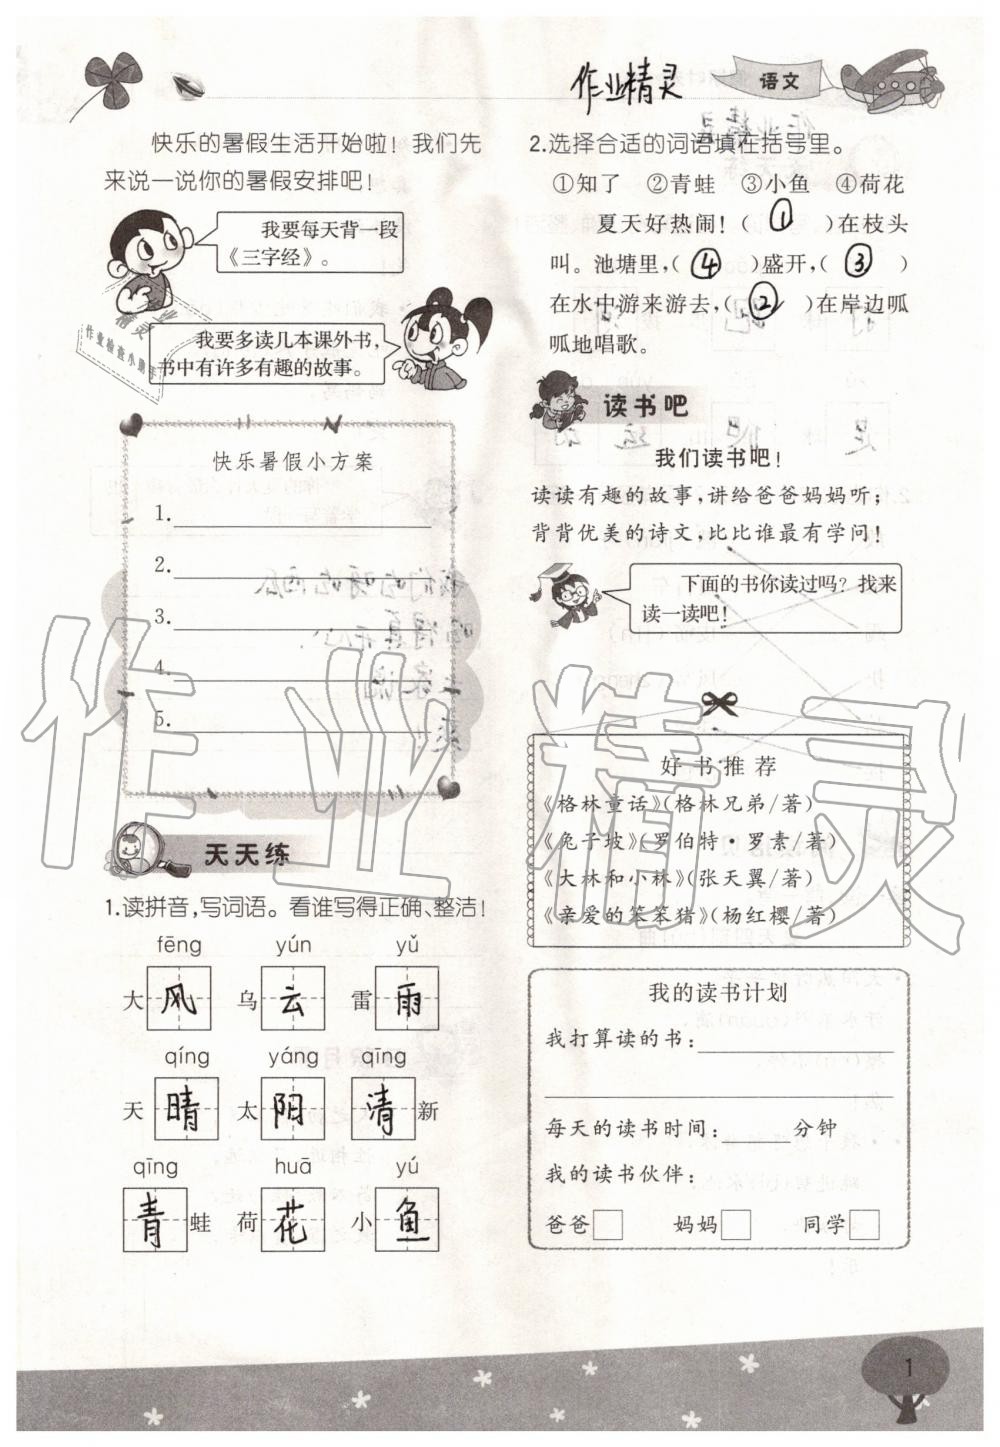 作业精灵
语文
快乐的暑假生活开始啦！我们先
来说一说你的暑假安排吧！
我要每天背一段
《三字经》。
作业检查小助手
我要多读几本课外书，
书中有许多有趣的故事。
快乐暑假小方案
1.
2.
3.
4.
5.
天天练
1.读拼音,写词语。看谁写得正确、整洁！
fēng yún yǔ
大风 乌云 雷雨
qíng yáng qīng
天晴 太阳 清新
qīng huā yú
青蛙 荷花 小鱼
2.选择合适的词语填在括号里。
①知了 ②青蛙 ③小鱼 ④荷花
夏天好热闹！(①)在枝头
叫。池塘里,(④)盛开,(③)
在水中游来游去,(②)在岸边呱
呱地唱歌。
读书吧
我们读书吧！
读读有趣的故事,讲给爸爸妈妈听；
背背优美的诗文,比比谁最有学问！
下面的书你读过吗？找来
读一读吧！
好书推荐
《格林童话》(格林兄弟/著)
《兔子坡》(罗伯特·罗素/著)
《大林和小林》(张天翼/著)
《亲爱的笨笨猪》(杨红樱/著)
我的读书计划
我打算读的书：
每天的读书时间： 分钟
我的读书伙伴：
爸爸□ 妈妈□ 同学□
1
作业精灵